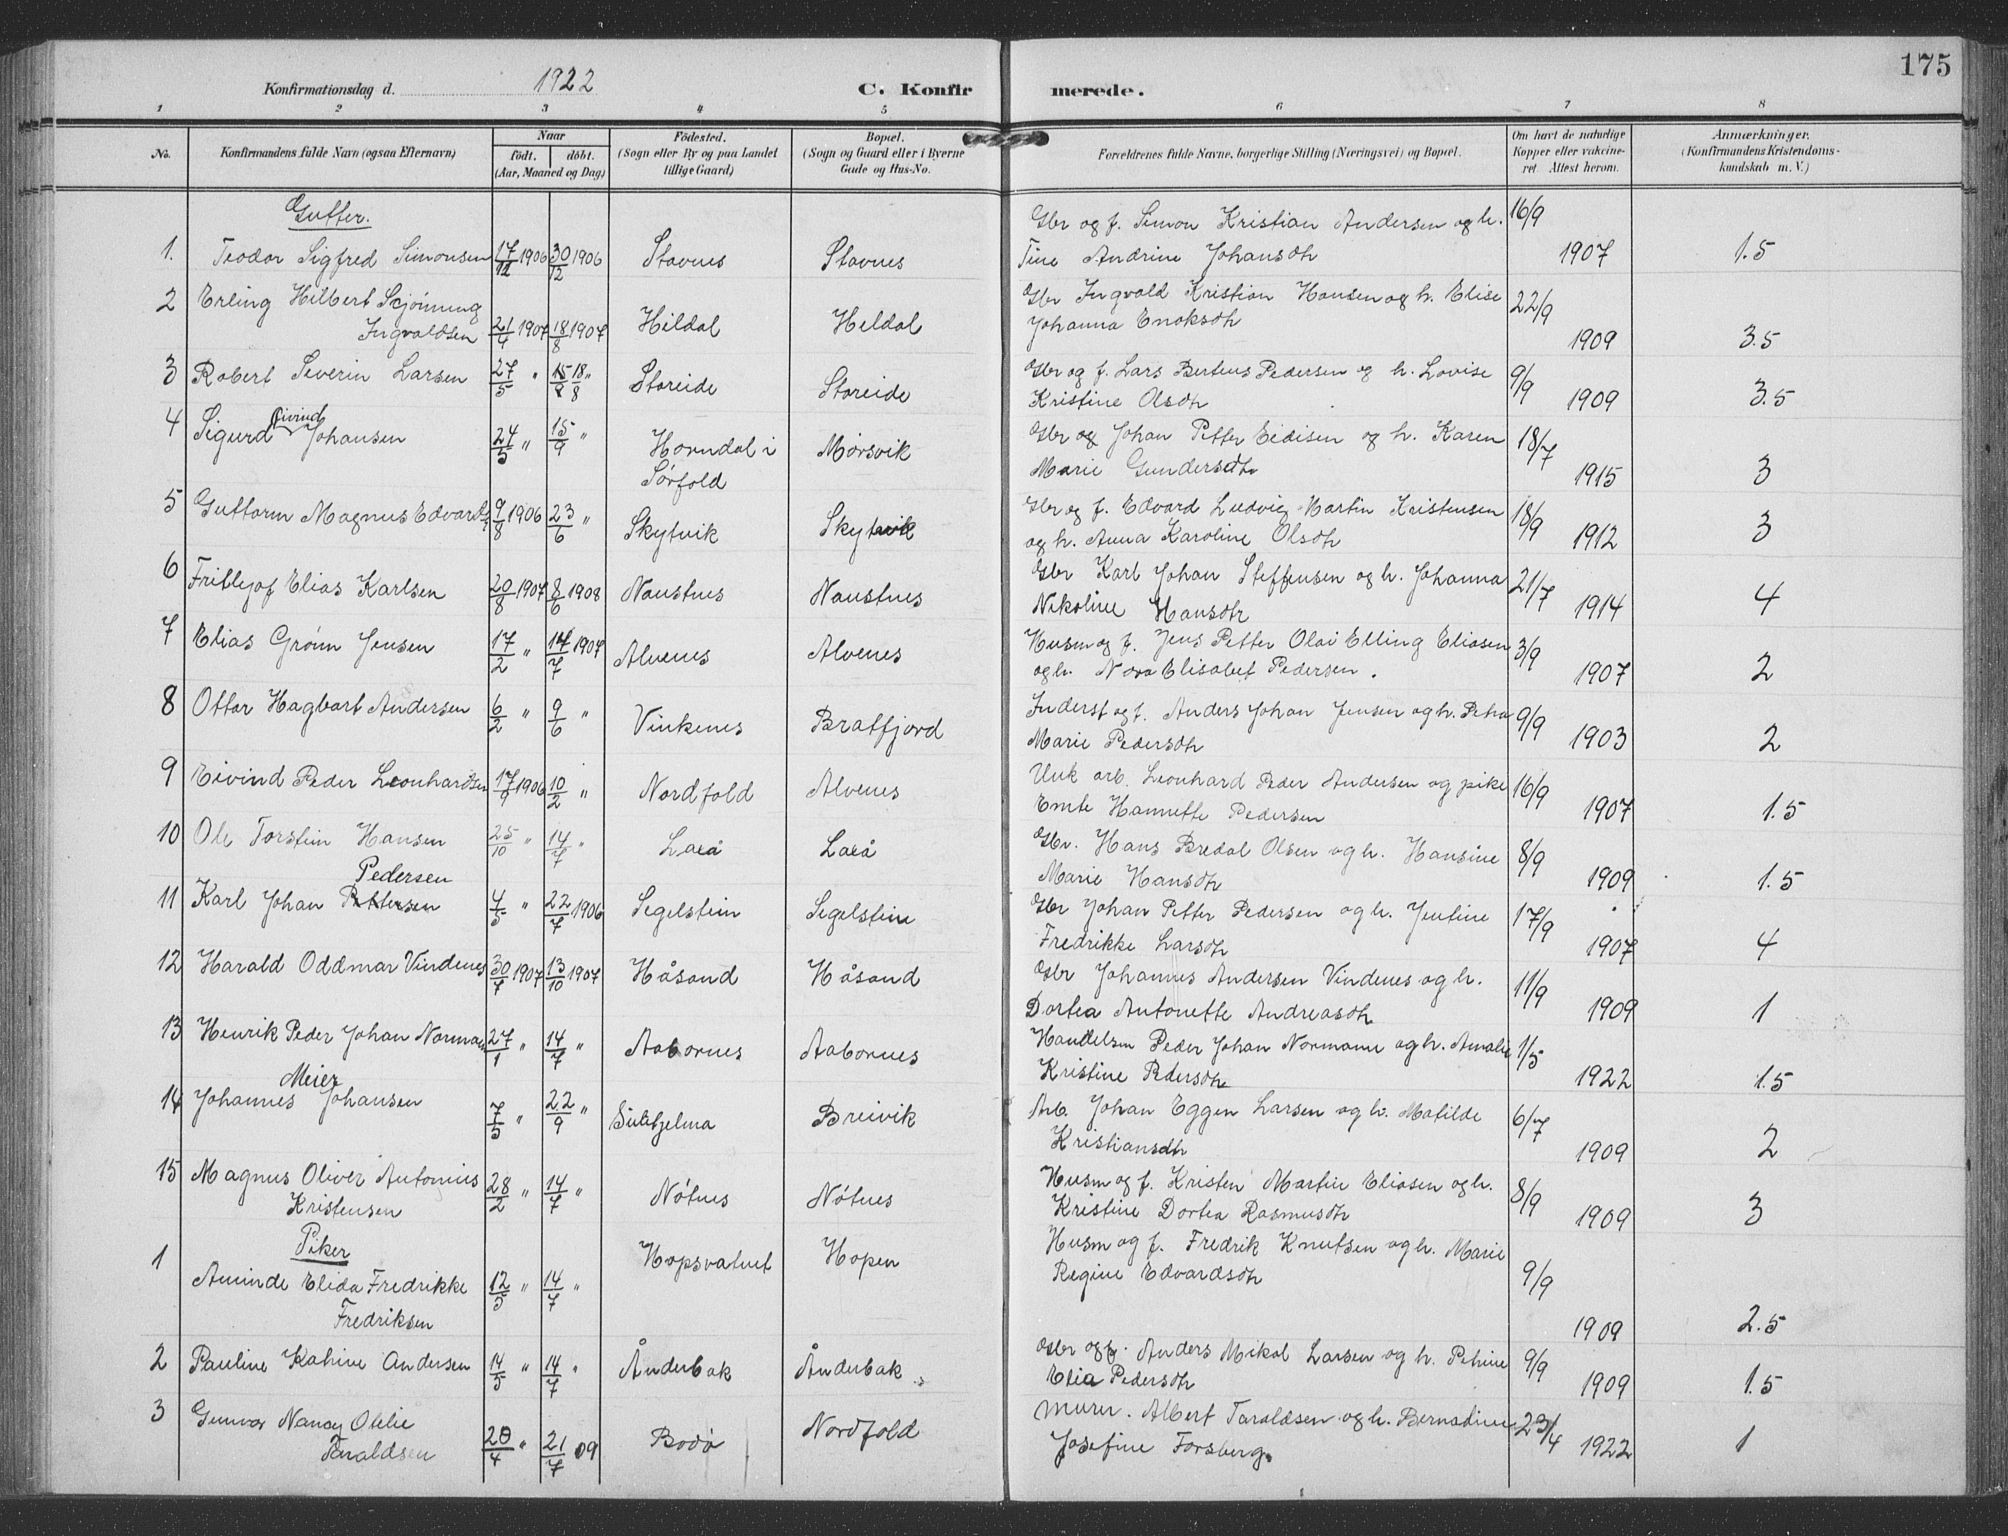 175
Konfirmationsdag d. 1922 C. Konfirmerede.
1 2 3 4 5 6 7 8
No. Konfirmandens fulde Navn (ogsaa Efternavn) Naar Födested. Bopæl. Forældrenes fulde Navne, borgerlige Stilling (Næringsvei) og Bopæl. Om havt de naturlige Anmærkninger.
födt. döbt. (Sogn eller By og paa Landet (Sogn og Gaard eller i Byerne Kopper eller vakcine- (Konfirmandens Kristendoms-
(Aar, Maaned og Dag) tillige Gaard) Gade og Hus-No. ret. Attest herom. kundskab m. V.)
Gutter.
1. Teodor Sigfred Simonsen 17/12 1906 30/12 1906 Stavnes Stavnes Gbr og f. Simon Kristian Andersen og h. 16/9
Tine Andrine Johansdtr 1907 1.5
2 Erling Hilbert Skjønning Gbr Ingvald Kristian Hansen og h. Elise 22/9
Ingvaldsen 21/4 1907 18/8 1907 Hildal Heldal Johanna Enoksdtr 1909 3.5
3 Robert Severin Larsen 27/5 " 18/8 " Storeide Storeide Gbr og f. Lars Berteus Pedersen og h. Lovise 9/9
Kristine Olsdtr 1909 3.5
4 Sigurd Eivind Johansen 24/5 " 15/9 " Horndal i Mørsvik Gbr og Johan Petter Eidisen og h. Karen 18/7
Sørfold Marie Gundersdtr 1915 3
5 Guttorm Magnus Edvards 9/8 1906 23/6 " Skytvik Skytvik Gbr og f. Edvard Ludvig Martin Kristensen 18/9
og h. Anna Karoline Olsdtr 1912 3
6 Fritjof Elias Karlsen 20/8 1907 8/6 1908 Naustnes Naustnes Gbr Karl Johan Steffensen og h. Johanna 21/7
Nikoline Hansdtr 1914 4
7 Elias Grønn Jensen 17/2 " 14/7 1907 Alvenes Alvenes Husm og f. Jens Petter Olai Elling Eliasen 3/9
og h. Nora Elisabet Pedersen. 1907 2
8 Ottar Hagbart Andersen 6/2 " 9/6 " Vinkenes Bratfjord Inderst og f. Anders Johan Jensen og h. Petra 9/9
Marie Pedersdtr 1903 2
9 Eivind Peder Leonhardsen 17/9 1906 10/2 " Nordfold Alvenes Unk arb. Leonhard Peder Andersen og pike 16/9
Emte Hannette Pedersen 1907 1.5
10 Ole Torstein Hansen 25/10 " 14/7 " Laxå Laxå Gbr. Hans Bredal Olsen og h. Hansine 8/9
Marie Hansdtr 1909 1.5
Pedersen
11 Karl Johan Pettersen 4/5 " 22/7 1906 Segelstein Segelstein Gbr Johan Petter Pedersen og h. Jentine 17/9
Fredrikke Larsdtr 1907 4
12 Harald Oddmar Vindenes 30/7 1907 13/10 1907 Håsand Håsand Gbr Johannes Andersen Vindenes og h. 11/9
Dortea Antonette Andreasdtr 1909 1
13 Henrik Peder Johan Normann 27/1 " 14/7 " Aabornes Aabornes Handelsm Peder Johan Normann og h. Amalie 1/5
Kristine Pedersdtr 1922 1.5
Meier
14 Johannes Johansen 7/5 " 22/9 " Sulitjelma Breivik Arb. Johan Eggen Larsen og h. Matilde 6/7
Kristiansdtr 1909 2
15 Magnus Oliver Antonius 28/2 " 14/7 " Nøtnes Nøtnes Husm og f. Kristen Martin Eliasen og h. 8/9
Kristensen Kristine Dortea Rasmusdtr 1909 3
Piker
1 Aminde Elida Fredrikke 12/5 " 14/7 " Hopsvatnet Hopen Husm og f. Fredrik Knutsen og h. Marie 9/9
Fredriksen Regine Edvardsdtr 1909 2.5
2 Pauline Kahine Andersen 14/5 " 14/7 " Ånderbak Ånderbak Gbr og f. Anders Mikal Larsen og h. Petrine 9/9
Elia Pedersdtr 1909 1.5
3 Gunvor Nancy Otelie 20/4 " 21/7 09 Bodø Nordfold Murer. Albert Taraldsen og h. Bernadine 23/4
Taraldsen Josefine Forsberg. 1922 1